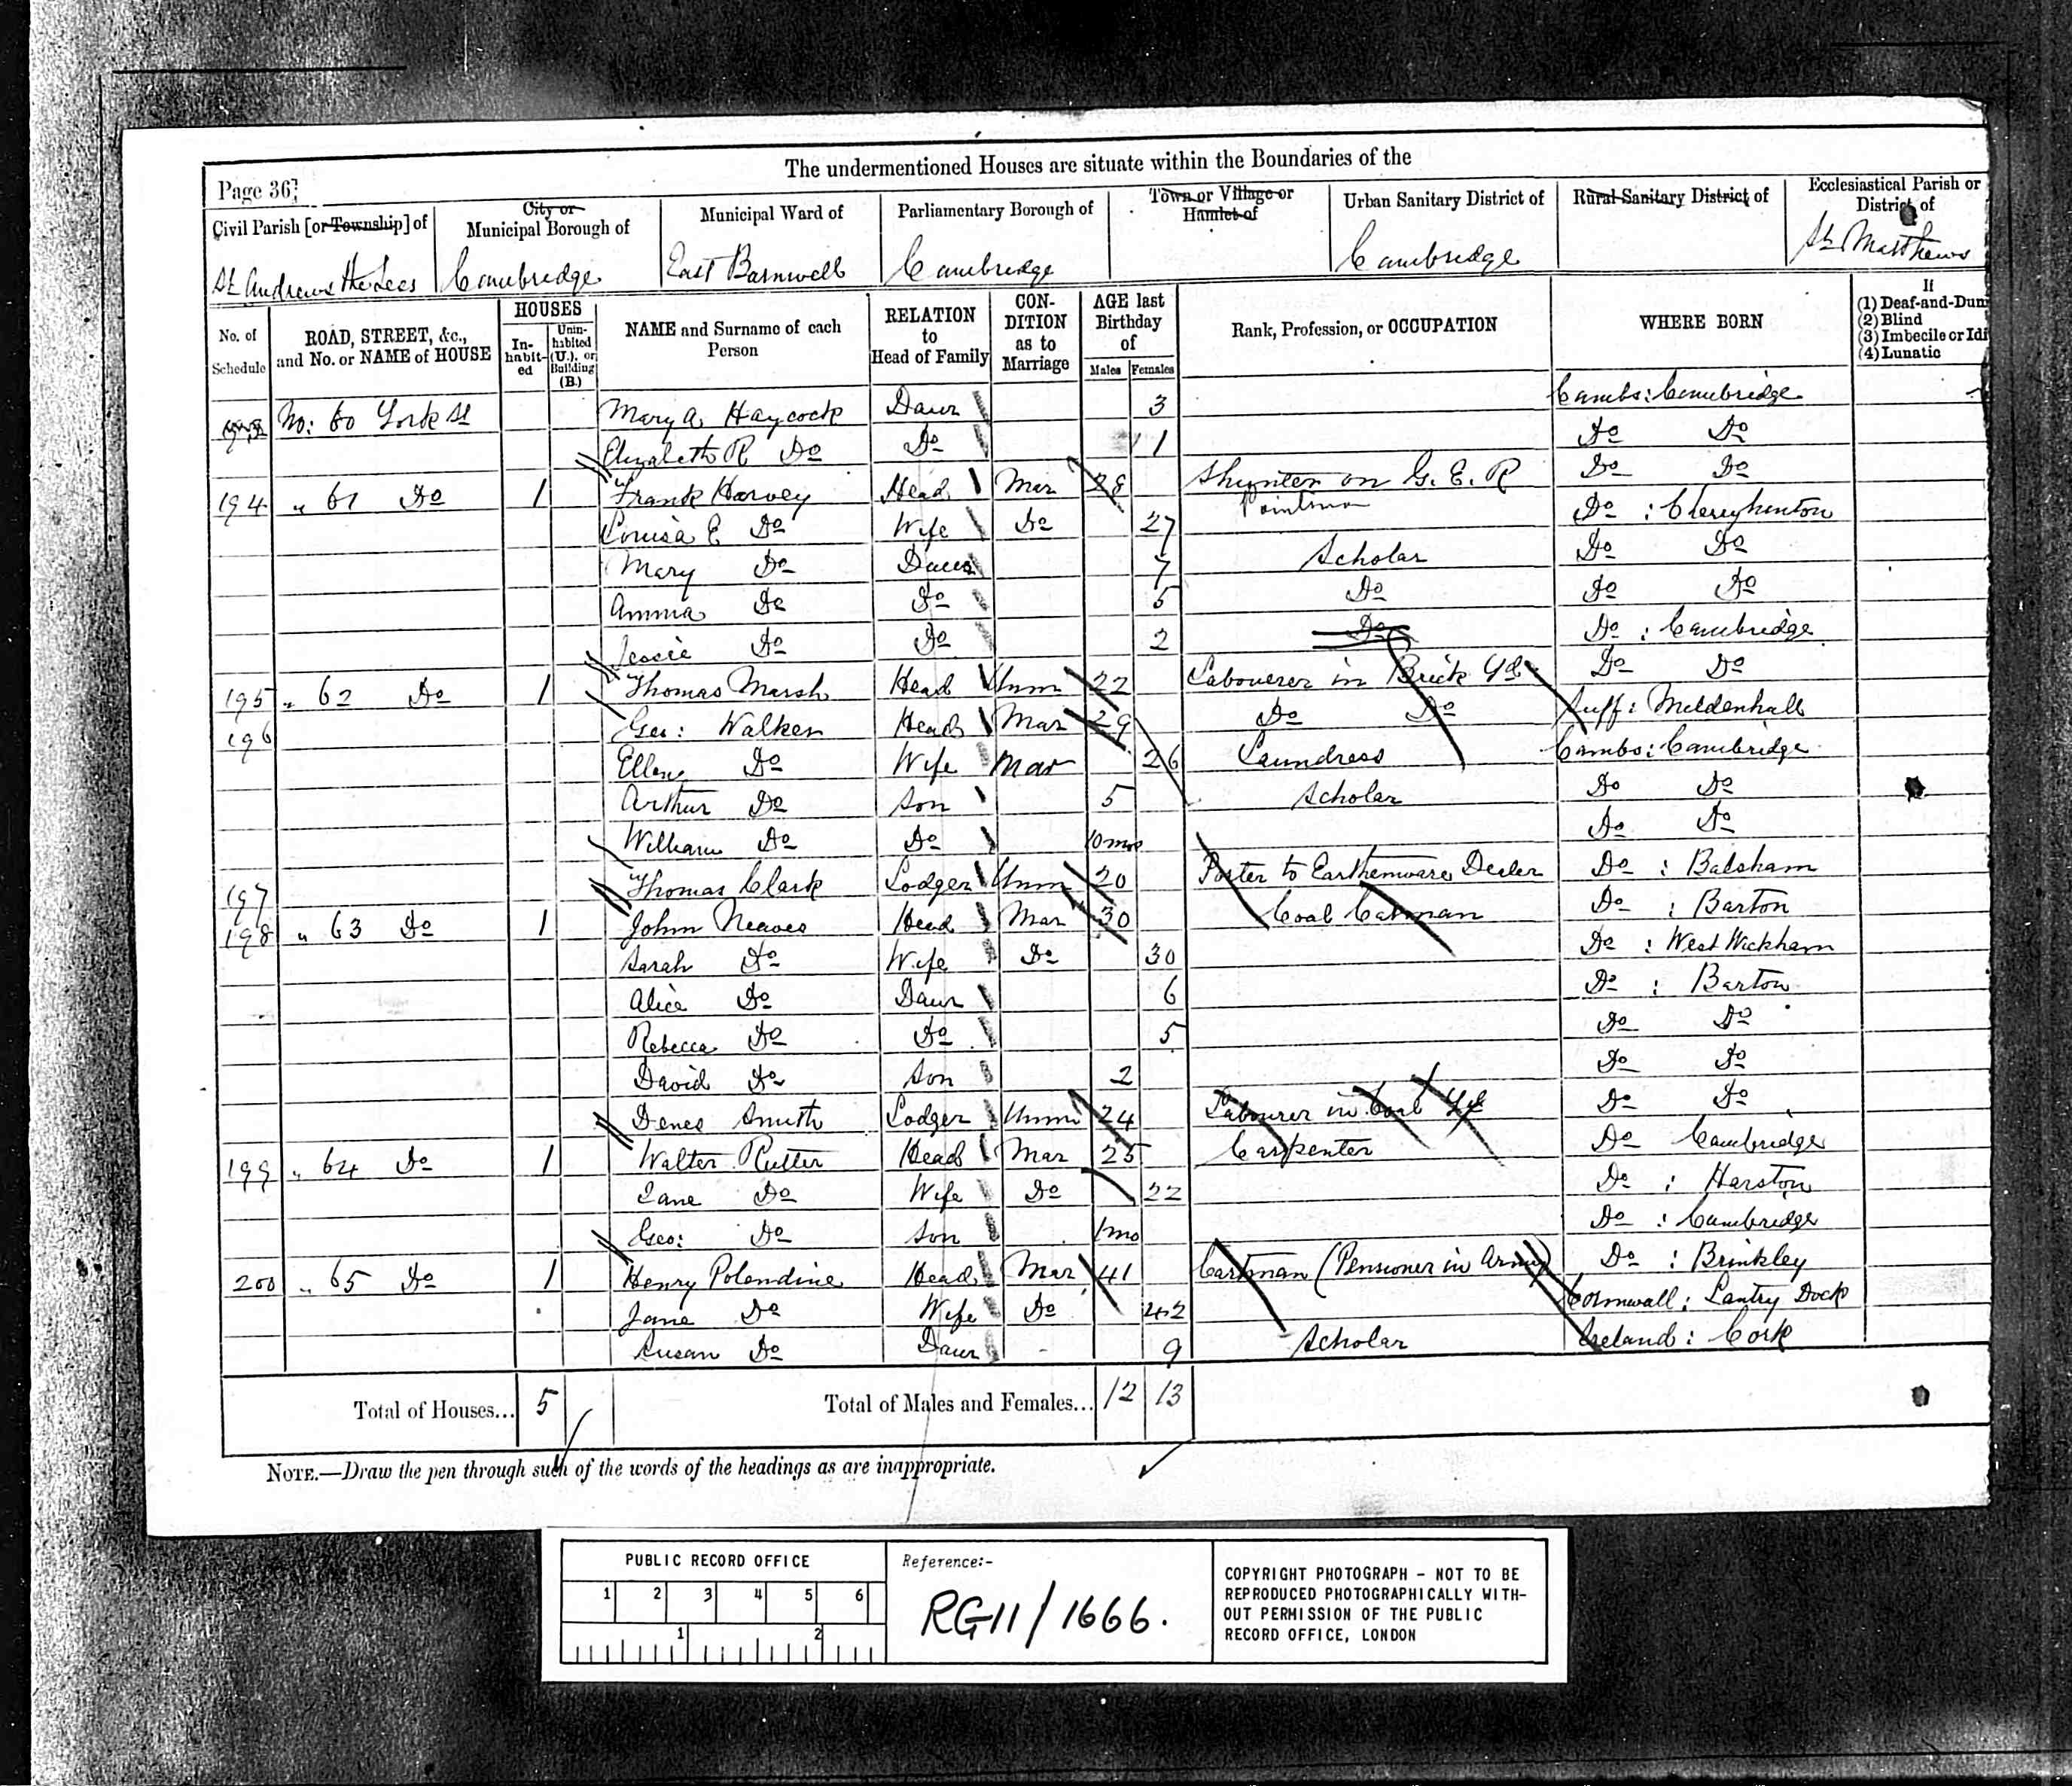 The undermentioned Houses are situate within the Boundaries of the
Page 36
Civil Parish [or Township] of
City or Municipal Borough of
Municipal Ward of
Parliamentary Borough of
Town or Village or Hamlet of
Urban Sanitary District of
Rural Sanitary District of
Ecclesiastical Parish or District of
St Andrews the Less Cambridge East Barnwell Cambridge Cambridge St Matthews
No. of Schedule
ROAD, STREET, &c., and No. or NAME of HOUSE
HOUSES
In-habit-ed
Unin-habited (U.), or Building (B.)
NAME and Surname of each Person
RELATION to Head of Family
CON-DITION as to Marriage
AGE last Birthday of
Males Females
Rank, Profession, or OCCUPATION
WHERE BORN
If
(1) Deaf-and-Dum
(2) Blind
(3) Imbecile or Idi
(4) Lunatic
No: 60 York St Mary A Haycock Daur 3 Cambs: Cambridge
Elizabeth R Do Do 1 Do Do
194 " 61 Do 1 Frank Harvey Head Mar 28 Shunter on G. E. R Do Do
Pointsman
Louisa E Do Wife Do 27 Do : Cherryhinton
Mary Do Daur 7 Scholar Do Do
Amma Do Do 5 Do Do Do
Jessie Do Do 2 Do Do : Cambridge
195 " 62 Do 1 Thomas Marsh Head Unm 22 Labourer in Brick Yd Do Do
196 Geo: Walker Head Mar 29 Do Do Suff: Mildenhall
Ellen Do Wife Mar 26 Laundress Cambs: Cambridge
Arthur Do Son 5 Scholar Do Do
William Do Do 10mos Do Do
197 Thomas Clark Lodger Unm 20 Porter to Earthenware Dealer Do : Balsham
198 " 63 Do 1 John Neaves Head Mar 30 Coal Carman Do : Barton
Sarah Do Wife Do 30 Do : West Wickham
Alice Do Daur 6 Do : Barton
Rebecca Do Do 5 Do Do
David Do Son 2 Do Do
Denes Smith Lodger Unm 24 Labourer in Coal Yd Do Do
199 " 64 Do 1 Walter Rutter Head Mar 25 Carpenter Do Cambridge
Jane Do Wife Do 22 Do : Harston
Geo: Do Son 1mo Do : Cambridge
200 " 65 Do 1 Henry Polendine Head Mar 41 Cartman (Pensioner in Army) Do : Brinkley
Jane Do Wife Do 42 Cornwall: Lantry Dock
Susan Do Daur 9 Scholar Ireland: Cork
Total of Houses... 5 Total of Males and Females... 12 13
NOTE.—Draw the pen through such of the words of the headings as are inappropriate.
PUBLIC RECORD OFFICE
1 2 3 4 5 6
1 2
Reference:-
RG11/1666.
COPYRIGHT PHOTOGRAPH - NOT TO BE
REPRODUCED PHOTOGRAPHICALLY WITH-
OUT PERMISSION OF THE PUBLIC
RECORD OFFICE, LONDON